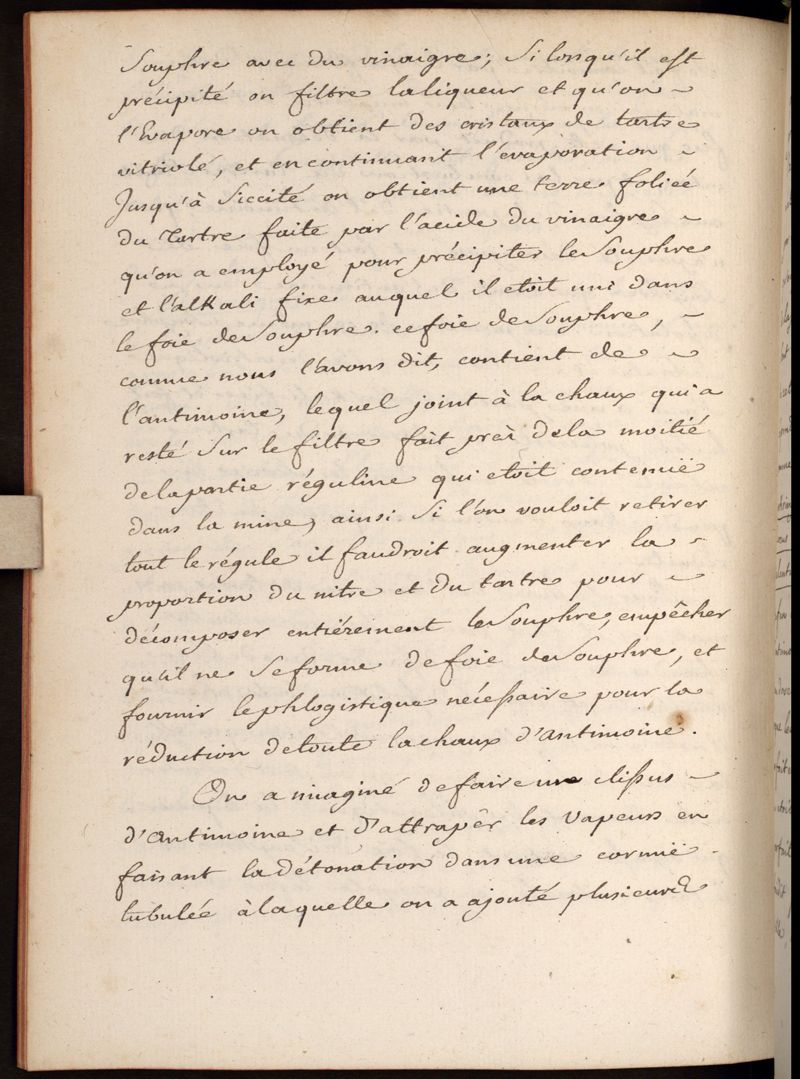 Souphre avec du vinaigre; Si lorsqu'il est
précipité on filtre laliqueur et qu'on ~
l'Evapore on obtient des cristaux de tartre
vitriolé, et encontinuant l'évaporation ~
Jusqu'à Siccité on obtient une terre foliéé
du Tartre faite par l'acide du vinaigre ~
qu'on a employé pour précipiter le Souphre
et l'alKali fixe auquel il etoit uni dans
le foie de Souphre. ce foie de Souphre, ~
comme nous l'avons dit, contient de ~
l'antimoine, lequel joint à la chaux qui a
resté Sur le filtre fait près dela moitié
delapartie réguline qui etoit contenuë
dans la mine, ainsi Si l'on vouloit retirer
tout le régule il faudroit augmenter la ~
proportion du nitre et du tartre pour ~
décomposer entiérement le Souphre, empêcher
qu'il ne Seforme defoie de Souphre, et
fournir lephlogistique nécessaire pour la
réduction detoute lachaux d'antimoine.
On a imaginé defaire un clissus ~
d'Antimoine et d'attraper les Vapeurs en
faisant la détonation dans une cornuë
tubulée àlaquelle on a ajouté plusieurs